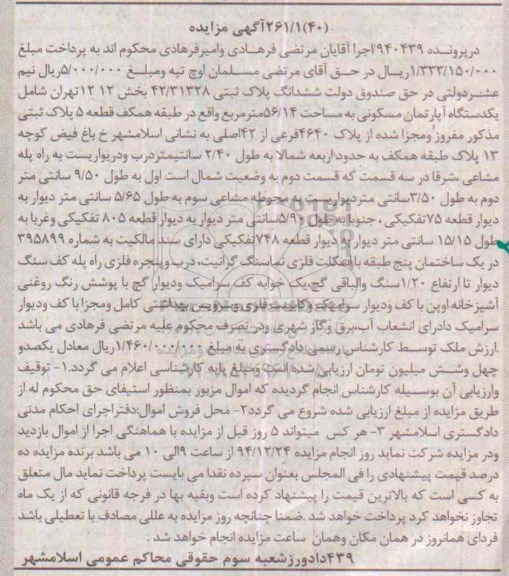 (۴۰)۲۶۱/۱آگهی مزایده
درپرونده ۹۴۰۴۳۹/اجرا آقایان مرتضی فرهادی وامیرفرهادی محکوم اند به پرداخت مبلغ
۱/۳۳۳/۱۵۰/۰۰۰ریال در حق آقای مرتضی مسلمان اوچ تپه ومبلغ ۵/۰۰۰/۰۰۰ریال نیم
عشردولتی در حق صندوق دولت ششدانگ پلاک ثبتی ۴۲/۳۱۳۲۸ بخش ۱۲ ۱۲تهران شامل
یکدستگاه آپارتمان مسکونی به مساحت ۵۶/۱۴مترمربع واقع در طبقه همکف قطعه ۵ پلاک ثبتی
مذکور مفروز ومجزا شده از پلاک ۴۶۴۰فرعی از ۴۲اصلی به نشانی اسلامشهر خ باغ فیض کوچه
۱۳ پلاک طبقه همکف به حدوداربعه شمالا به طول ۲/۴۰ سانتیمتردرب ودیواریست به راه پله
مشاعی ،شرقا در سه قسمت که قسمت دوم به وضعیت شمال است اول به طول ۹/۵۰ سانتی متر
دوم به طول ۳/۵۰سانتی متردیواریست به محوطه مشاعی سوم به طول ۵/۶۵ سانتی متر دیوار به
دیوار قطعه ۷۵تفکیکی ، جنوبا به طول ۵/۹۰سانتی متر دیوار به دیوار قطعه ۸۰۵ تفکیکی وغربا به
طول ۱۵/۱۵ سانتی متر دیوار به دیوار قطعه ۷۴۸تفکیکی دارای سند مالکیت به شماره ۳۹۵۸۹۹
در یک ساختمان پنج طبقه با اسکلت فلزی نماسنگ گرانیت، درب وپنجره فلزی راه پله کف سنگ
دیوار تا ارتفاع ۱/۲۰سنگ والباقی گچ،یک خوابه کف سرامیک ودیوار گچ با پوشش رنگ روغنی
آشپزخانه اوپن با کف ودیوار سرامیک وکابینت فلزی وسرویس بهداشتی کامل ومجزا با کف ودیوار
سرامیک دادرای انشعاب آب،برق وگاز شهری ودر تصرف محکوم علیه مرتضی فرهادی می باشد
.ارزش ملک توسط کارشناس رسمی دادگستری به مبلغ ۱/۴۶۰/۰۰۰/۰۰۰ریال معادل یکصدو
چهل وشش میلیون تومان ارزیابی شده است ومبلغ پایه کارشناسی اعلام می گردد.۱- توقیف
وارزیابی آن بوسیله کارشناس انجام گردیده که اموال مزبور بمنظور استیفای حق محکوم له از
طریق مزایده از مبلغ ارزیابی شده شروع می گردد۲- محل فروش اموال:دفتراجرای احکام مدنی
دادگستری اسلامشهر ۳- هر کس میتواند ۵ روز قبل از مزایده با هماهنگی اجرا از اموال بازدید
ودر مزایده شرکت نماید روز انجام مزایده ۹۴/۱۲/۲۴ از ساعت ۹الی ۱۰ می باشد برنده مزایده ده
درصد قیمت پیشنهادی را فی المجلس بعنوان سپرده نقدا می بایست پرداخت نماید مال متعلق
به کسی است که بالاترین قیمت را پیشنهاد کرده است وبقیه بها در فرجه قانونی که از یک ماه
تجاوز نخواهد کرد پرداخت خواهد شد .ضمنا چنانچه روز مزایده به عللی مصادف با تعطیلی باشد
فردای همانروز در همان مکان وهمان ساعت مزایده انجام خواهد شد .
۴۳۹دادورزشعبه سوم حقوقی محاکم عمومی اسلامشهر